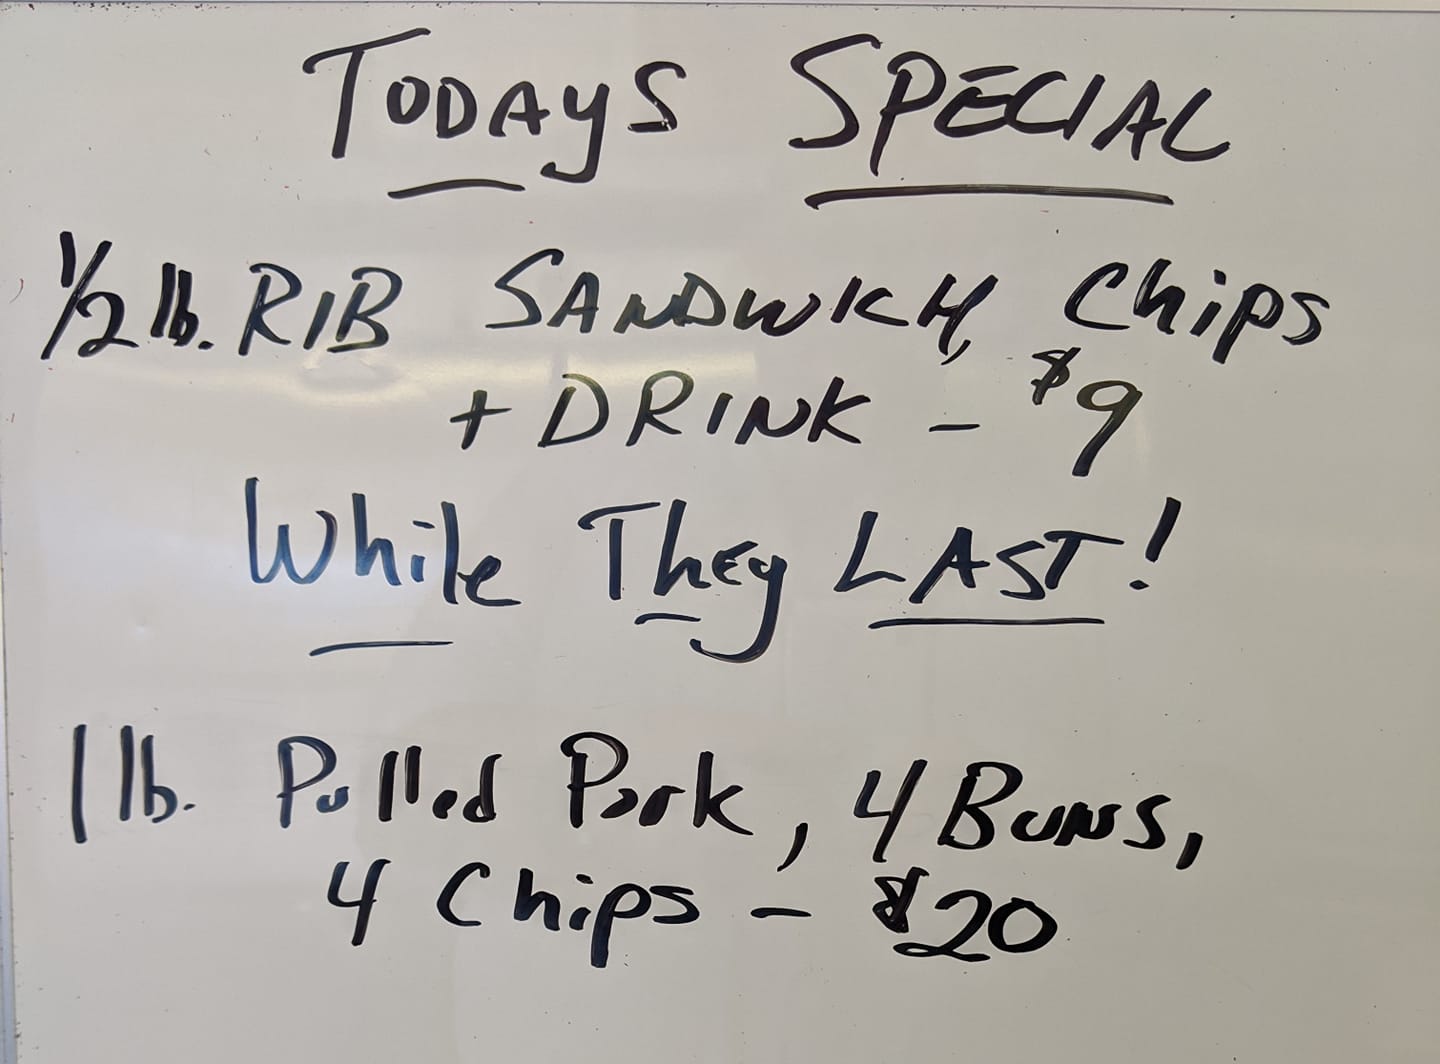 TODAYS SPECIAL
1/2 lb. RIB SANDWICH, Chips
+ DRINK - $9
While They LAST!
1 lb. Pulled Pork, 4 Buns,
4 Chips - $20